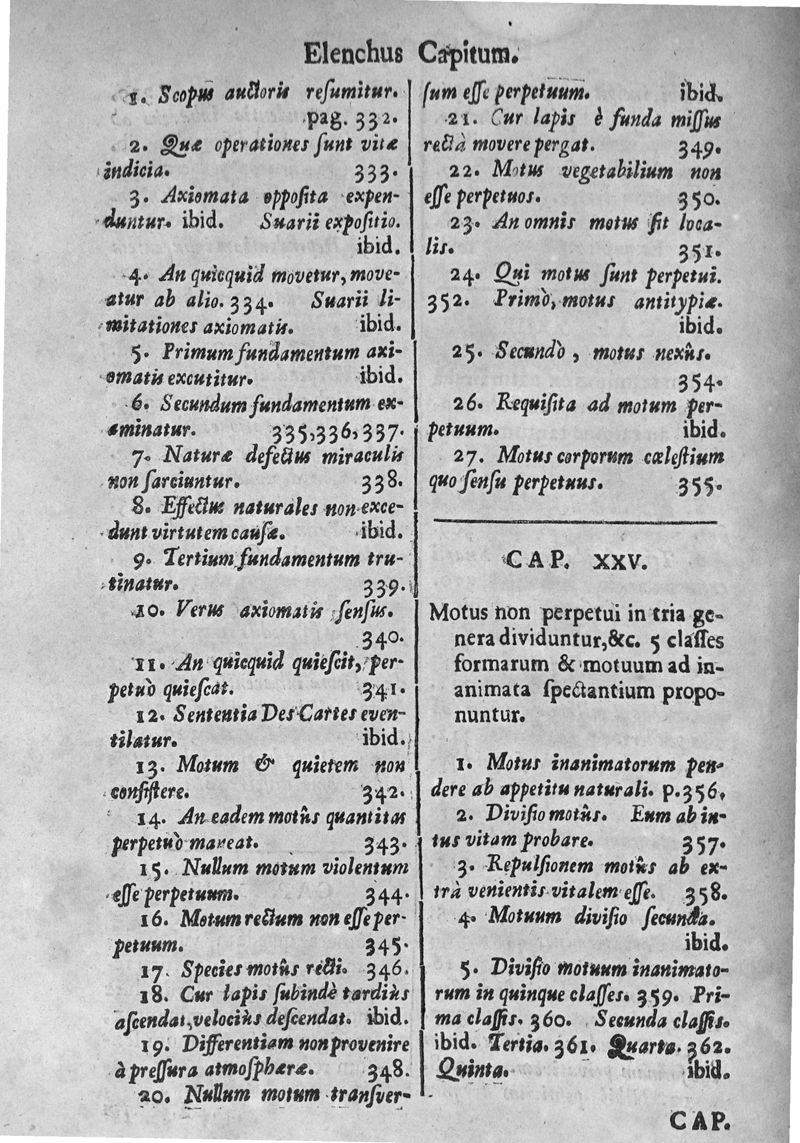 Elenchus Capitum.
1. Scopus auctoris resumitur.
pag. 332.
2. Quæ operationes sunt vitæ
indicia. 333.
3. Axiomata opposita expen-
duntur. ibid. Suarii expositio.
ibid.
4. An quicquid movetur, move-
atur ab alio. 334. Suarii li-
mitationes axiomatis. ibid.
5. Primum fundamentum axi-
omatis excutitur. ibid.
6. Secundum fundamentum ex-
aminatur. 335, 336, 337.
7. Naturæ defectus miraculis
non sarciuntur. 338.
8. Effectus naturales non exce-
dunt virtutem causæ. ibid.
9. Tertium fundamentum tru-
tinatur. 339.
10. Verus axiomatis sensus.
340.
11. An quicquid quiescit, per-
petuò quiescat. 341.
12. Sententia Des Cartes even-
tilatur. ibid.
13. Motum & quietem non
consistere. 342.
14. An eadem motûs quantitas
perpetuò maneat. 343.
15. Nullum motum violentum
esse perpetuum. 344.
16. Motum rectum non esse per-
petuum. 345.
17. Species motûs recti. 346.
18. Cur lapis subindè tardiùs
ascendat, velociùs descendat. ibid.
19. Differentiam non provenire
à pressura atmosphæræ. 348.
20. Nullum motum transver-
sum esse perpetuum. ibid.
21. Cur lapis è funda missus
rectà movere pergat. 349.
22. Motus vegetabilium non
esse perpetuos. 350.
23. An omnis motus sit loca-
lis. 351.
24. Qui motus sunt perpetui.
352. Primò, motus antitypiæ.
ibid.
25. Secundò, motus nexûs.
354.
26. Requisita ad motum per-
petuum. ibid.
27. Motus corporum cœlestium
quo sensu perpetuus. 355.
CAP. XXV.
Motus non perpetui in tria ge-
nera dividuntur, &c. 5 classes
formarum & motuum ad in-
animata spectantium propo-
nuntur.
1. Motus inanimatorum pen-
dere ab appetitu naturali. p. 356.
2. Divisio motûs. Eum ab in-
tus vitam probare. 357.
3. Repulsionem motûs ab ex-
trà venientis vitalem esse. 358.
4. Motuum divisio secunda.
ibid.
5. Divisio motuum inanimato-
rum in quinque classes. 359. Pri-
ma classis. 360. Secunda classis.
ibid. Tertia. 361. Quarta. 362.
Quinta. ibid.
CAP.